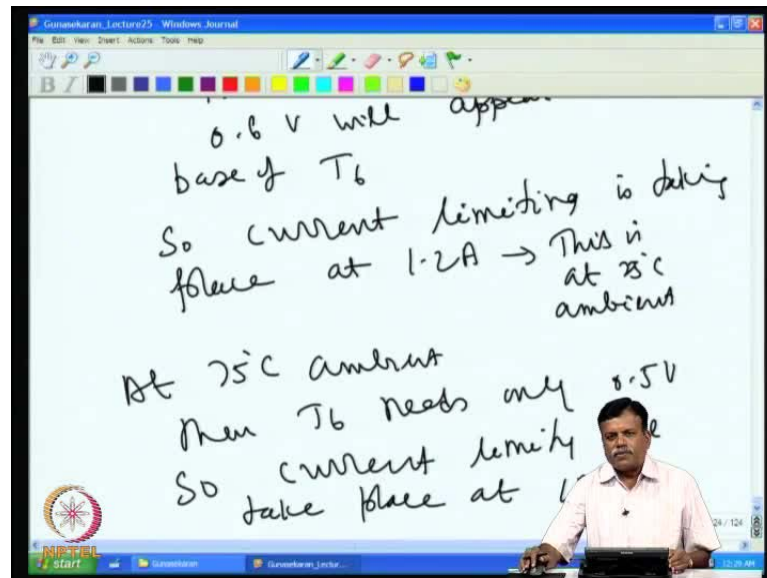 Gunasekaran_Lecture25 - Windows Journal
File Edit View Insert Actions Tools Help
B I
0.6 V will appear
base of T6
So current limiting is taking
place at 1.2A → This is
at 25°C
ambient
At 75°C ambient
then T6 needs only 0.5V
So current limiting
take place at
24 / 124
NPTEL
start
Gunasekaran
Gunasekaran_Lectur...
12:29 AM